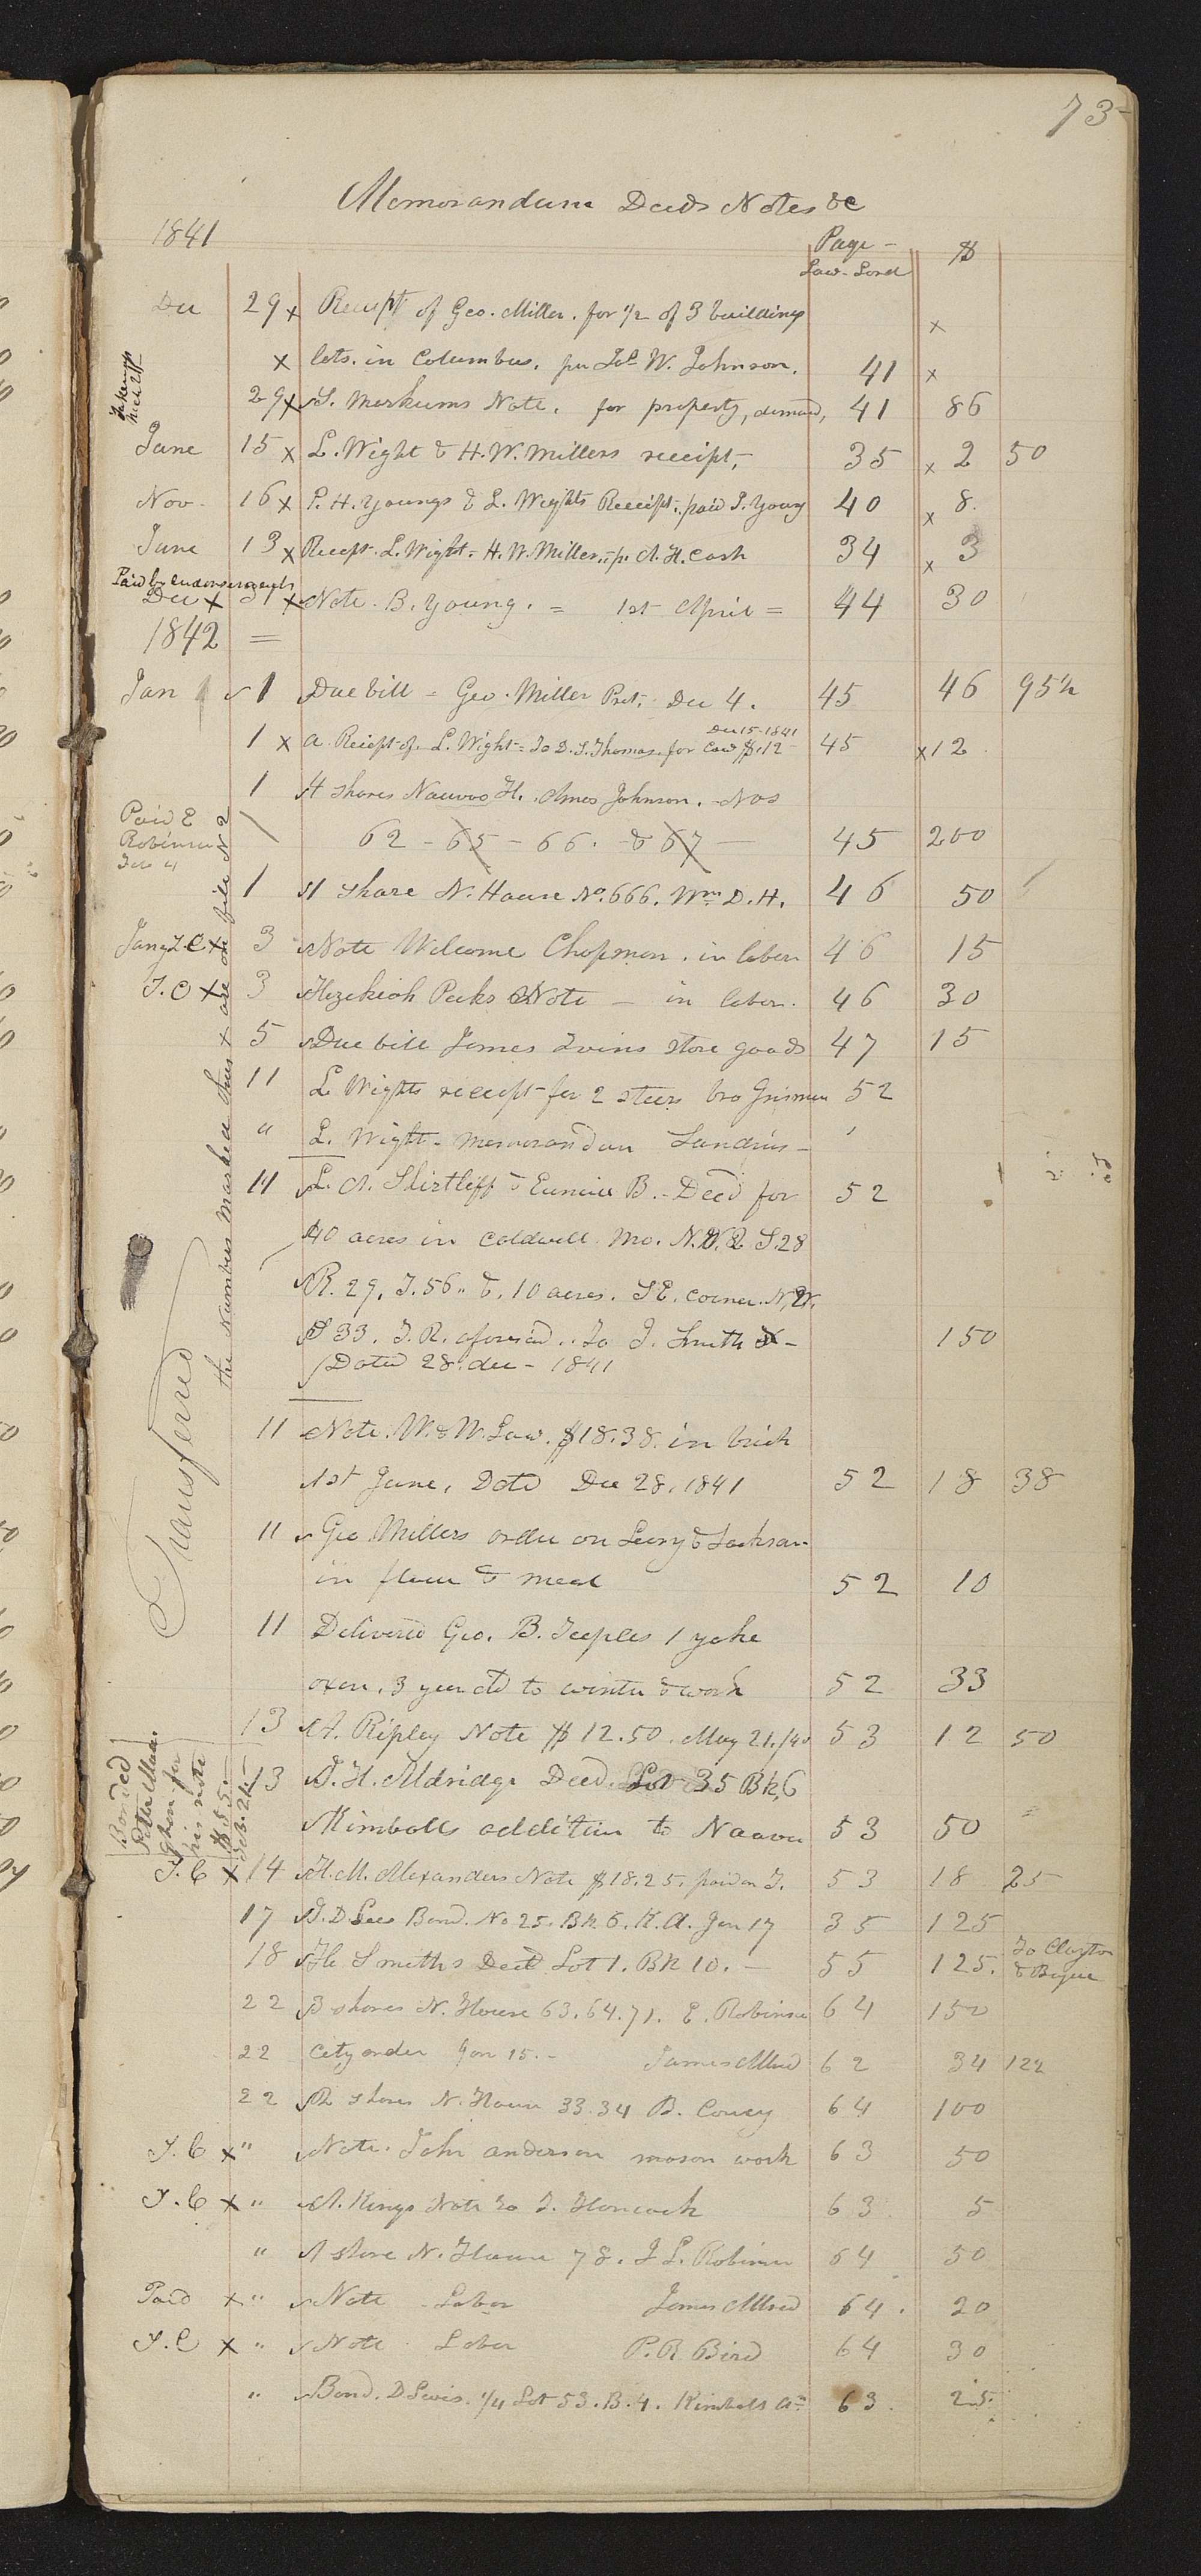 73
Memorandum Deeds Notes &c
1841
Page - $
Law-
Dec 29 x Receipt of Geo. Miller. for 1/2 of 3 building x
x lots. in Columbus. per W. Johnson. 41 x
29 x S. Markums Note. for property, demand, 41 86
June 15 x L. Wight & H. W. Millers receipt, 35 x 2 50
Nov. 16 x P. H. Youngs & L. Wights Receipt. paid Young 40 x 8.
June 13 x Recept. L. Wight = H. W. Miller, p. A. H. Cash 34 x 3
Paid by Endorsements
Dec x 31 x Note. B. Young. = 1st April = 44 30
1842 =
Jan 1 Due bill = Geo. Miller Prst. Dec 4. 45 46 95½
Dec 15-1841
1 x a Reciept of L. Wight = To D. S. Thomas. for Cow $.12 45 x12
1 4 shares Nauvoo H. Amos Johnson. - Nos
62 - 65 - 66. - & 67 - 45 200
Paid E
Robinson
1 1 share N. House No. 666. Wm D. H. 46 50
Jany T.C. x 3 Note Welcome Chapman. in labor 46 15
T.C x 3 Hezekiah Peeks Note - in labor. 46 30
5 Due bill James Ivins store goods 47 15
11 L. Wights receipt for 2 steers bro 52
" L. Wight - memorandum - '
11 L. A. Shirtleff & Eunice B. - Deed for 52
40 acres in Caldwell Mo. N.W. 2 S.28
R. 29, T. 56. &. 10 acres. S E. corner. N.W.
S 33. T. R. aforesaid.. To J. Smith - 150
Dated 28. dec - 1841
11 Note. W. & W. Law. $18.38. in brick
1st June, Datd Dec 28, 1841 52 18 38
11 Geo Millers order on Levy & Jackson
in flour & meal 52 10
11 Delivered Geo. B. Teeples 1 yoke
oxen. 3 year old to winter & work 52 33
13 A. Ripley Note $12.50. May 21./40 53 12 50
13 J. H. Aldridge Deed. Lot 35 Bk, 6
Kimballs addition to Nauvoo 53 50
T.C x 14 H. M. Alexanders Note $18.25. paid on T. 53 18 25
17 J. D Lees Bond. No 25. Bk 6. K. A. Jan 17 35 125
18 Smiths Deed Lot 1. Bk 10. - 55 125. To Clayton
22 3 shares N. House 63. 64. 71. E. Robinson 64 150
22 City order Jan 15. - James Allred 62 34 122
22 2 shares N. House 33. 34 B. Covey 64 100
T.C x " Note. John anderson mason work 63 50
T.C x " A. Kings Note To T. Hancock 63. 5
" 1 share N. House 78. J L. Robinson 64 50
Paid x " Note - Labor James Allred 64. 20
T.C x " Note. Labor P. R. Bird 64 30
" Bond. D Lewis. 1/4 Lot 53. B. 4. Kimbals 63. 25.
the Numbers marked thus x are on file N 2
Transferred
Bonded
Peter Maw
given for
his note
$55.-
Feb. 24